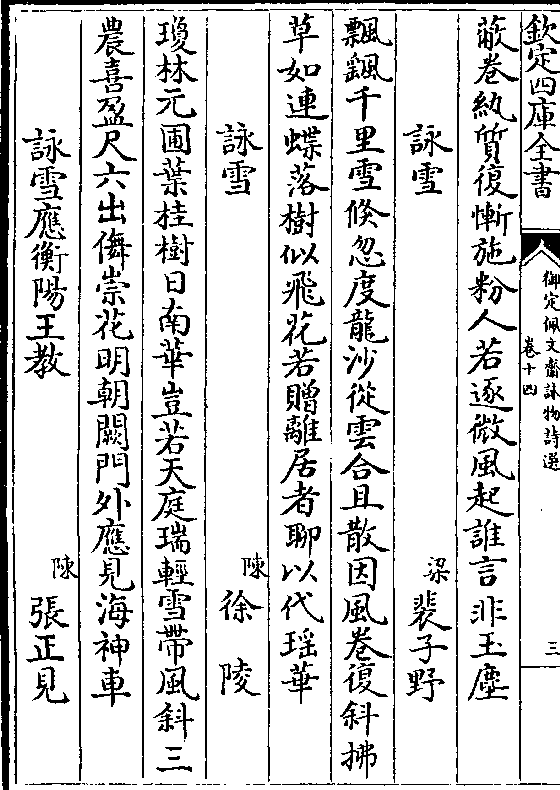 欽定四庫全書
御定佩文齋詠物詩選
卷十四
三
蔽卷紈質復慚施粉人若逐微風起誰言非玉塵
詠雪 梁 裴子野
飄颻千里雪倐忽度龍沙從雲合且散因風卷復斜拂
草如連蝶落樹似飛花若贈離居者聊以代瑶華
詠雪 陳 徐陵
瓊林元圃葉桂樹日南華豈若天庭瑞輕雪帶風斜三
農喜盈尺六出儛崇花明朝闕門外應見海神車
詠雪應衡陽王教 陳 張正見